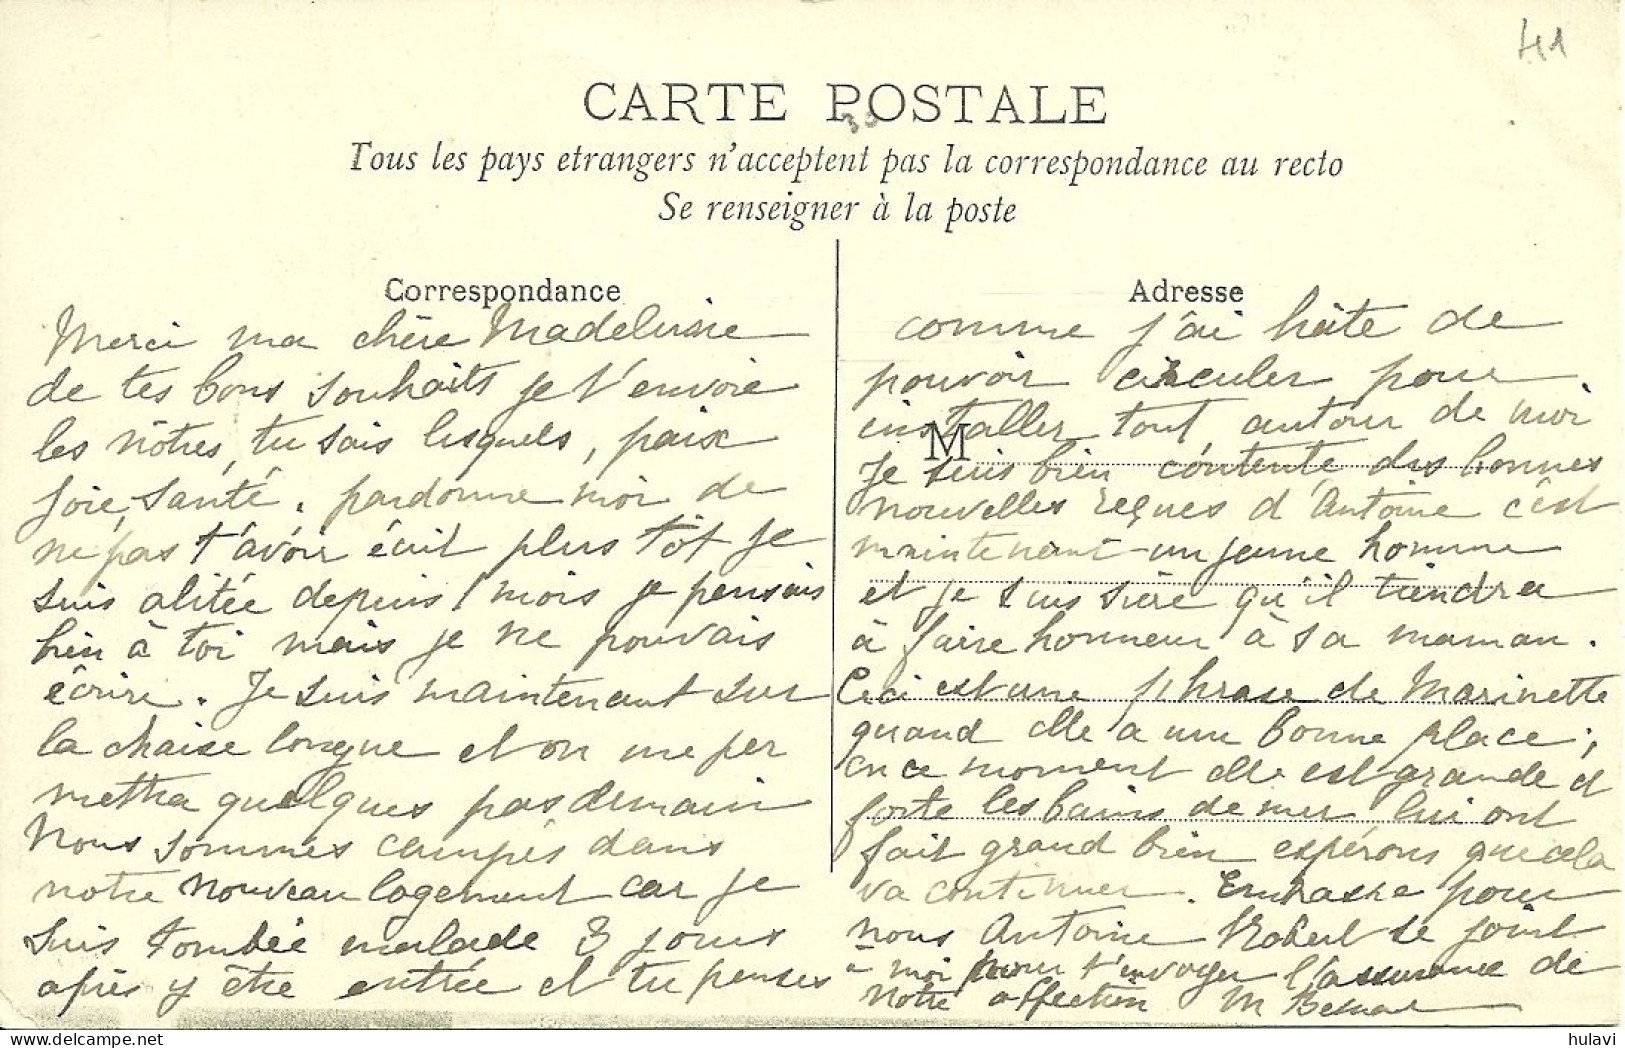 41
CARTE POSTALE
30
Tous les pays etrangers n'acceptent pas la correspondance au recto
Se renseigner à la poste
Correspondance
Merci ma chère Madeleine
de tes bons souhaits je t'envoie
les nôtres, tu sais lesquels, paix
joie, santé. pardonne moi de
ne pas t'avoir écrit plus tôt je
suis alitée depuis 1 mois je pensais
bien à toi mais je ne pouvais
écrire. Je suis maintenant sur
la chaise longue et on me per
mettra quelques pas demain
Nous sommes campés dans
notre nouveau logement car je
suis tombée malade 3 jours
après y être entrée et tu penses
Adresse
comme j'ai hâte de
pouvoir circuler pour
installer tout autour de moi
M
Je suis bien contente des bonnes
nouvelles reçues d'Antoine c'est
maintenant un jeune homme
et je suis sûre qu'il tiendra
à faire honneur à sa maman.
Ceci est une phrase de Marinette
quand elle a une bonne place;
en ce moment elle est grande et
forte les bains de mer lui ont
fait grand bien espérons que cela
va continuer. Embrasse pour
nous Antoine Robert se joint
à moi pour t'envoyer l'assurance de
notre affection M Besnard
hulavi